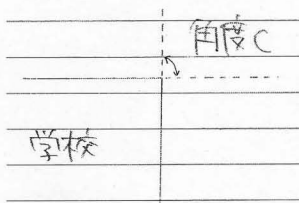 角度C
学校